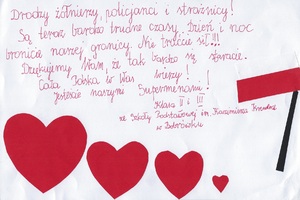 Drodzy żołnierze, policjanci i strażnicy!
Są teraz bardzo trudne czasy. Dzień i noc
bronicie naszej granicy. Nie traćcie sił!!!
Dziękujemy Wam, że tak bardzo się staracie.
Cała Polska w Was wierzy!
Jesteście naszymi Supermenami!
Klasa II i III
ze Szkoły Podstawowej im. Kazimierza
w